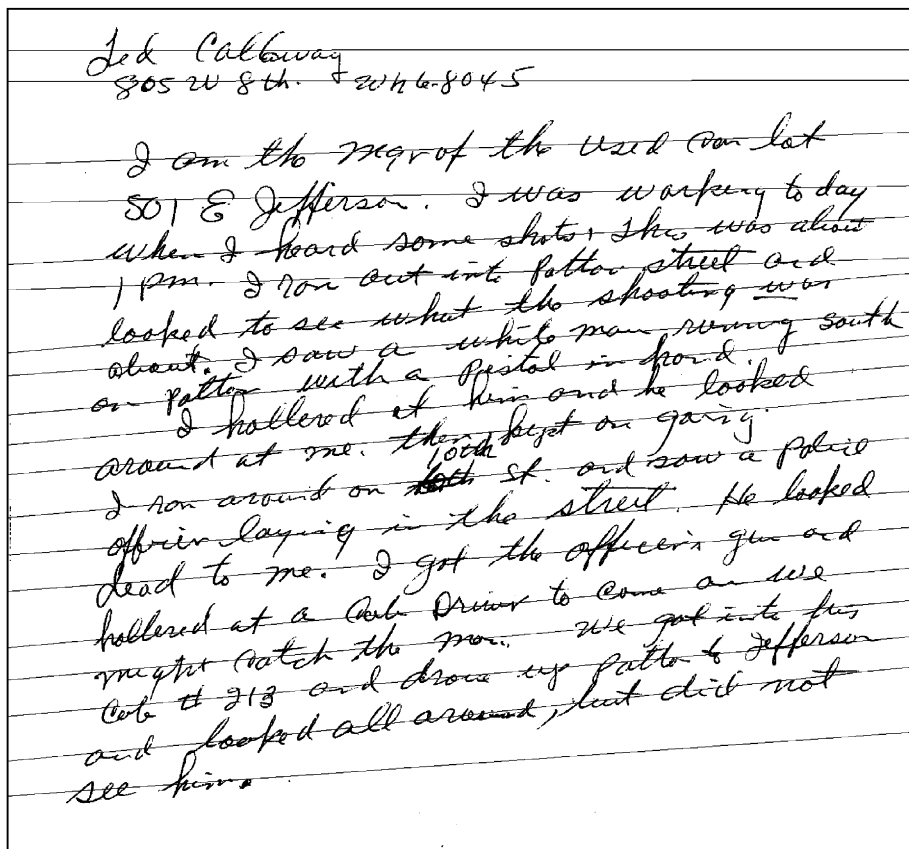 Ted Calloway
805 W 8th. Wh6-8045
I am the mgr of the used car lot
501 E Jefferson. I was working today
when I heard some shots, this was about
1 pm. I ran out into Patton street and
looked to see what the shooting was
about. I saw a white man, runing south
on Patton with a pistol in hand.
I hollered at him and he looked
around at me. then, kept on going.
I ran around on 10th St. and saw a police
officer laying in the street. He looked
dead to me. I got the officer's gun and
hollered at a Cab Driver to come on we
might catch the man. We got into his
Cab # 213 and drove up Patton to Jefferson
and looked all around, but did not
see him.